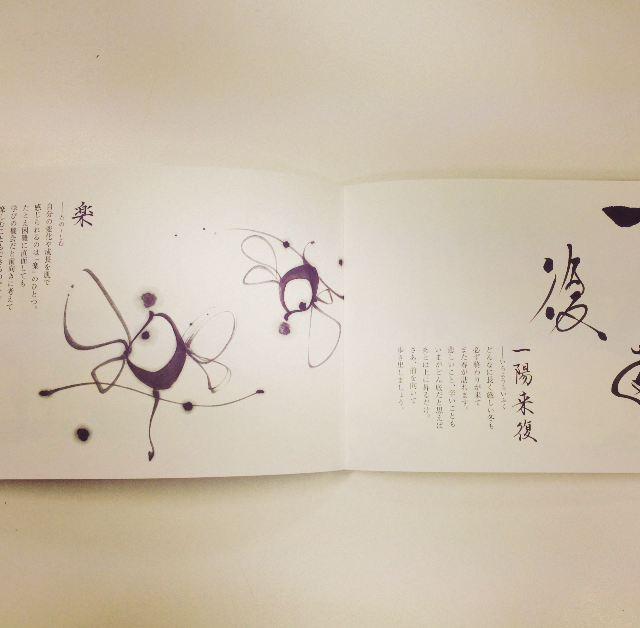 復
一陽来復
——いちようらいふく
どんなに長く厳しい冬も
必ず終わりが来て
また春が訪れます。
悲しいこと、辛いことも
いまがどん底だと思えば
あとは上に昇るだけ。
さあ、前を向いて
歩き出しましょう。
楽
——たの－しむ
自分の変化や成長を肌で
感じられるのは「楽」のひとつ。
たとえ困難に直面しても
学びの機会だと前向きに考えて